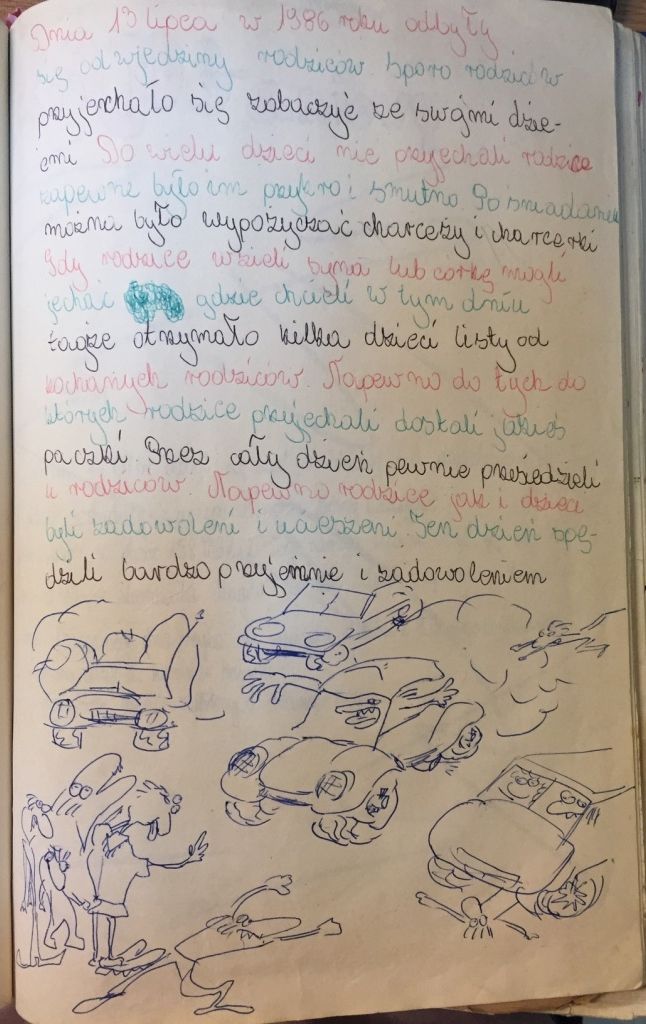 Dnia 13 lipca w 1986 roku odbyły
się odwjedzimy rodziców. Sporo rodziców
przyjechało się zobaczyć ze swojmi dzie-
cmi Do wielu dzieci nie przyjechali rodzice
zapewne było im przykro i smutno. Po śniadaniu
można było wypożyczać charceży i charcerki
Gdy rodzice wzieli syna lub córkę mogli
jechać gdzie chcieli w tym dniu
także otrzymało kilka dzieci listy od
kochanych rodziców. Napewno do tych do
których rodzice przyjechali dostali jakieś
paczki. Przez cały dzień pewnie przesiedzieli
u rodziców. Napewno rodzice jak i dzieci
byli zadowoleni i ucieszeni. Ten dzień spę-
dzili bardzo przyjemnie i zadowoleniem